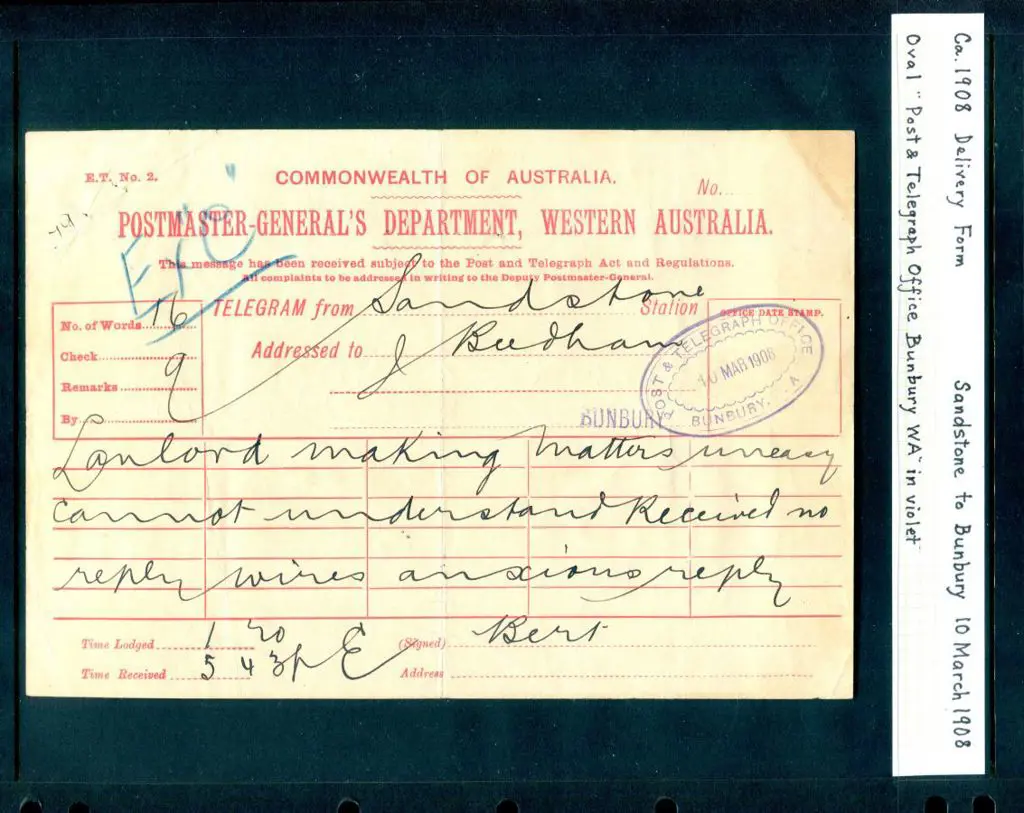 E.T. No. 2.
COMMONWEALTH OF AUSTRALIA.
No...
POSTMASTER-GENERAL'S DEPARTMENT, WESTERN AUSTRALIA.
This message has been received subject to the Post and Telegraph Act and Regulations.
All complaints to be addressed in writing to the Deputy Postmaster-General.
TELEGRAM from Sandstone Station
OFFICE DATE STAMP.
No. of Words 16
Addressed to J Beedham
Check 9
Remarks
By
POST & TELEGRAPH OFFICE
10 MAR 1908
BUNBURY. . A
BUNBURY
Lanlord making matters uneasy
cannot understand Received no
reply wires anxious reply
Time Lodged 1 20
(Signed) Bert
Time Received 5 43p E
Address
Ca. 1908 Delivery Form Sandstone to Bunbury 10 March 1908
Oval "Post & Telegraph Office Bunbury WA" in violet